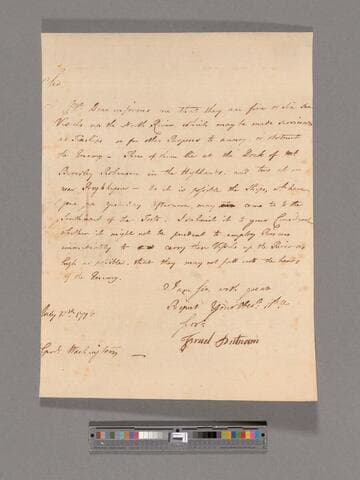 Sir
Mr Deane informs me that they are five or six
Vessels in the North River which may be made serviceable
as Fireships or for other Purposes to annoy or obstruct
the Enemy – Three of them lie at the Dock of Mr
Beverley Robinson in the Highlands, and two at or
near Poughkepsie – As it is possible the Ships, which have
gone up yesterday afternoon, may come to the
Southward of the Forts. I submit it to your Consideration
whether it might not be prudent to employ Persons
immediately to carry these Vessels up the River as
high as possible, that they may not fall into the hands
of the Enemy.
I am Sir with great
Respect Your
Israel Putnam
July 13th 1776
Genl Washington